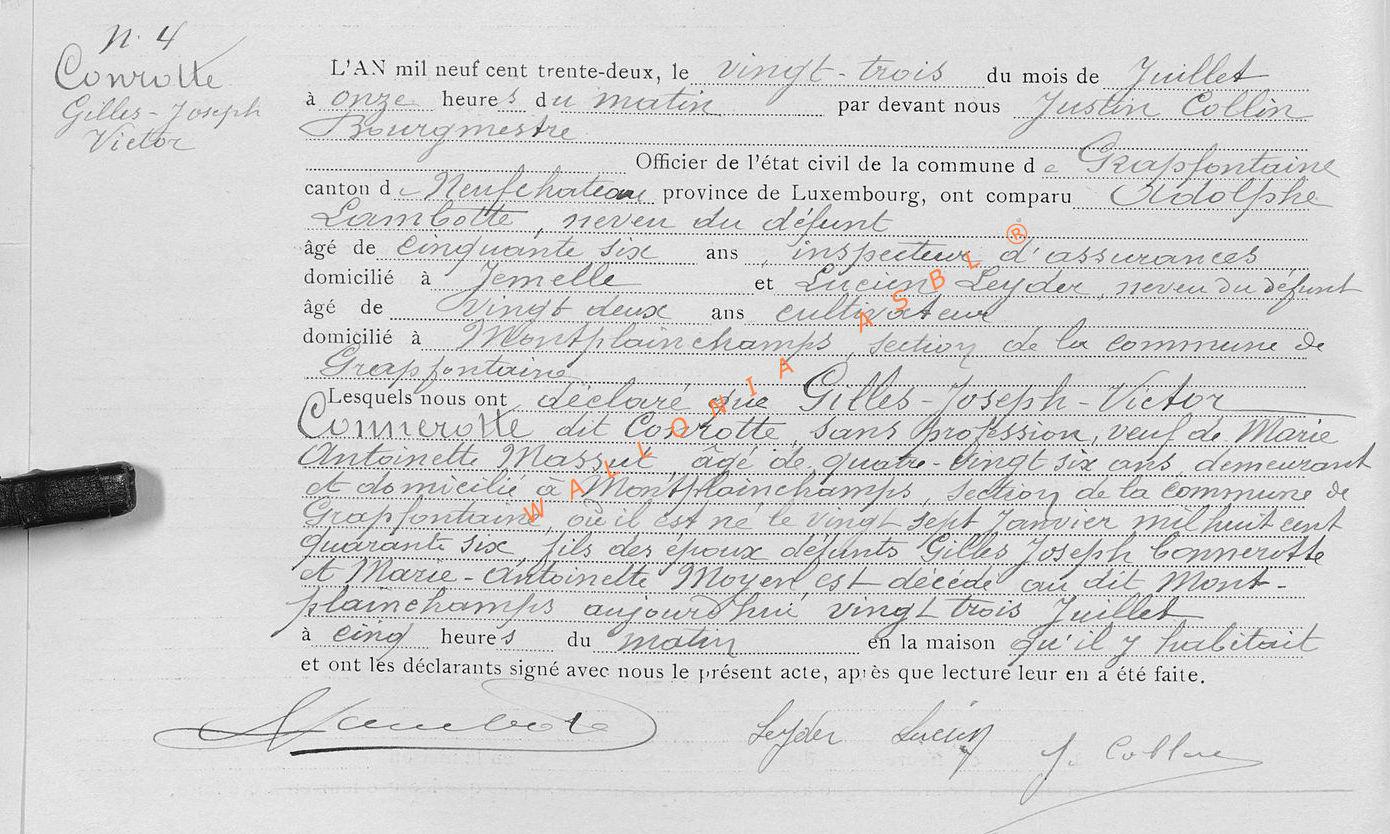 N. 4
Conrotte
Gilles-Joseph
Victor
L'AN mil neuf cent trente-deux, le vingt-trois du mois de Juillet
à onze heures du matin par devant nous Justin Collin
Bourgmestre
Officier de l'état civil de la commune de Grapfontaine
canton de Neufchateau province de Luxembourg, ont comparu Adolphe
Lambotte, neveu du défunt
âgé de cinquante six ans, inspecteur d'assurances
domicilié à Jemelle et Lucien Leyder, neveu du défunt
âgé de vingt deux ans cultivateur
domicilié à Montplainchamps, section de la commune de
Grapfontaine
Lesquels nous ont déclaré que Gilles-Joseph-Victor
Connerotte dit Conrotte, sans profession, veuf de Marie
Antoinette Massut, âgé de quatre-vingt six ans, demeurant
et domicilié à Montplainchamps, section de la commune de
Grapfontaine, où il est né le vingt sept Janvier mil huit cent
quarante six, fils des époux défunts Gilles Joseph Connerotte
et Marie-Antoinette Moyen est décédé au dit Mont-
plainchamps aujourd'hui vingt trois Juillet
à cinq heures du matin en la maison qu'il y habitait
et ont les déclarants signé avec nous le présent acte, après que lecture leur en a été faite.
A Lambotte Leyder Lucien J. Collin
WALLONIA ASBL ®